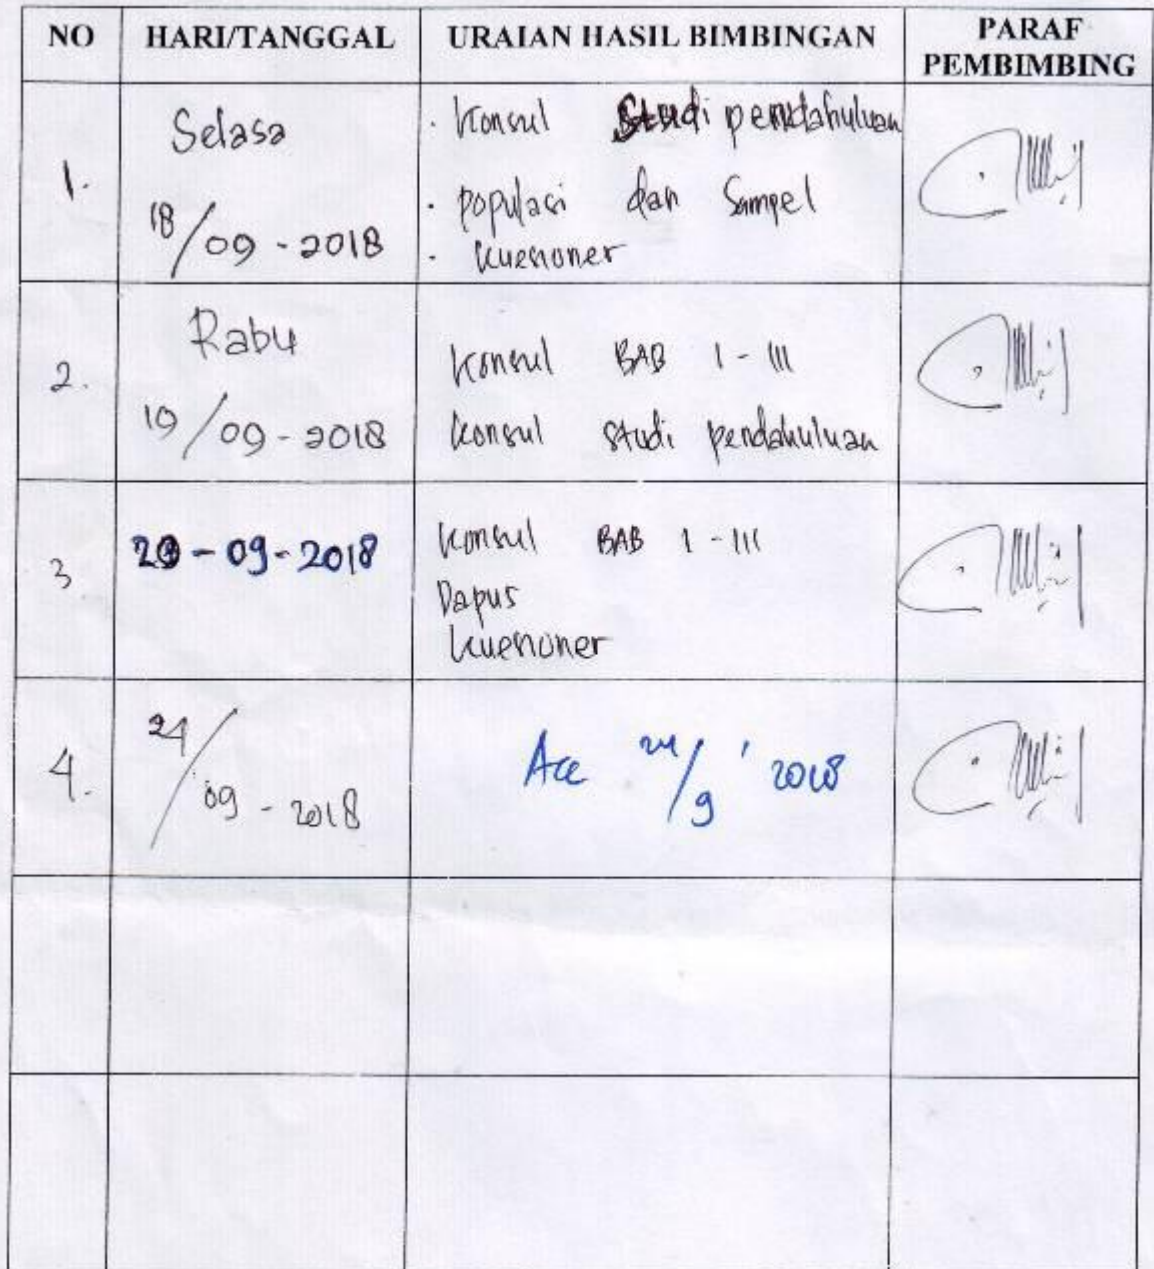 NO HARI/TANGGAL URAIAN HASIL BIMBINGAN PARAF PEMBIMBING
1. Selasa
18/09-2018
. Konsul Studi pendahuluan
. populasi dan Sampel
. kuesioner
2. Rabu
19/09-2018
Konsul BAB I-III
Konsul studi pendahuluan
3
-09-2018
Konsul BAB I-III
Dapus
kuesioner
4.
24/09-2018
Acc 24/9 ' 2018